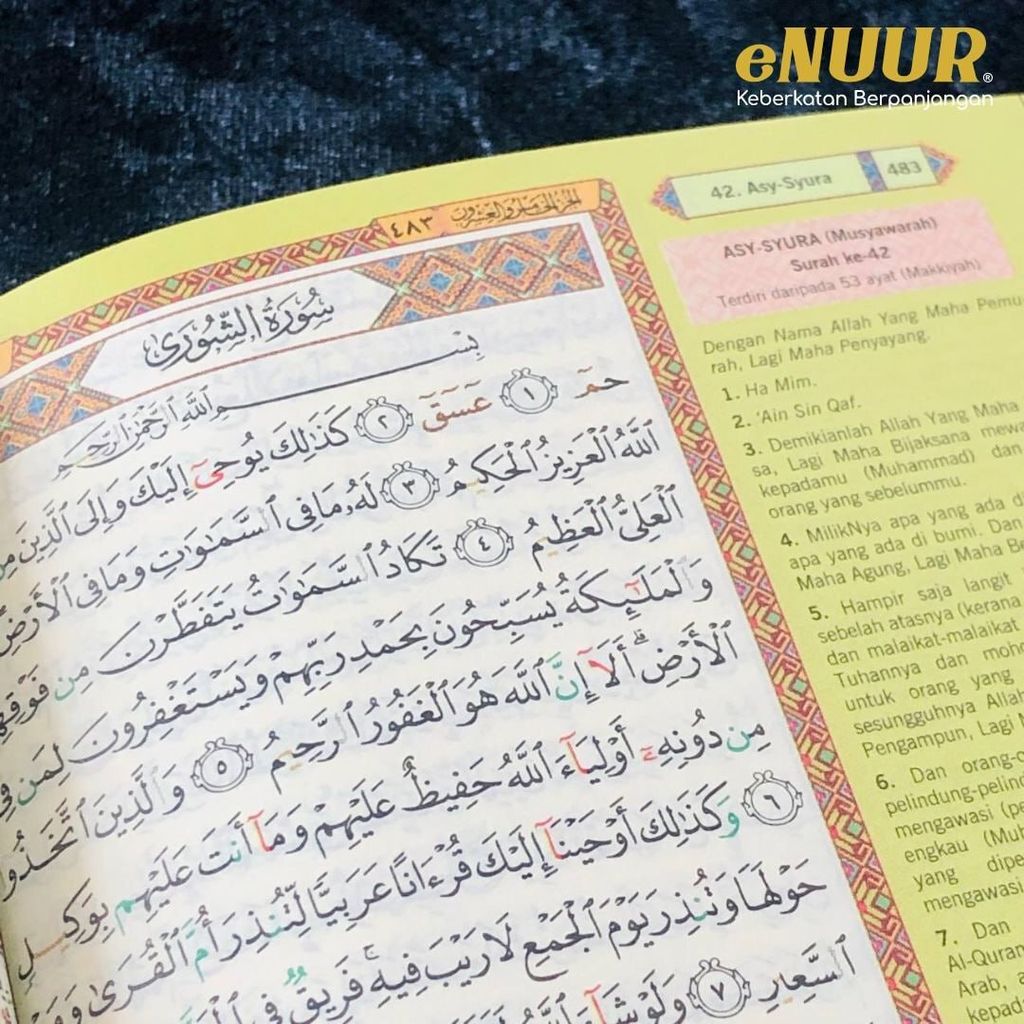 eNUUR®
Keberkatan Berpanjangan
الجزء الخامس والعشرون
٤٨٣
سُورَةُ الشُّورَىٰ
بِسْمِ اللَّهِ الرَّحْمَٰنِ الرَّحِيمِ
حمٓ ١ عٓسٓقٓ ٢ كَذَٰلِكَ يُوحِىٓ إِلَيْكَ وَإِلَى ٱلَّذِينَ مِن
ٱللَّهُ ٱلْعَزِيزُ ٱلْحَكِيمُ ٣ لَهُۥ مَا فِى ٱلسَّمَٰوَٰتِ وَمَا فِى ٱلْأَرْضِ
ٱلْعَلِىُّ ٱلْعَظِيمُ ٤ تَكَادُ ٱلسَّمَٰوَٰتُ يَتَفَطَّرْنَ مِن فَوْقِهِ
وَٱلْمَلَٰٓئِكَةُ يُسَبِّحُونَ بِحَمْدِ رَبِّهِمْ وَيَسْتَغْفِرُونَ لِمَن فِى
ٱلْأَرْضِ ۗ أَلَآ إِنَّ ٱللَّهَ هُوَ ٱلْغَفُورُ ٱلرَّحِيمُ ٥ وَٱلَّذِينَ ٱتَّخَذُوا
مِن دُونِهِۦٓ أَوْلِيَآءَ ٱللَّهُ حَفِيظٌ عَلَيْهِمْ وَمَآ أَنتَ عَلَيْهِم بِوَكِيلٍ
٦ وَكَذَٰلِكَ أَوْحَيْنَآ إِلَيْكَ قُرْءَانًا عَرَبِيًّا لِّتُنذِرَ أُمَّ ٱلْقُرَىٰ وَمَ
حَوْلَهَا وَتُنذِرَ يَوْمَ ٱلْجَمْعِ لَا رَيْبَ فِيهِ ۚ فَرِيقٌ فِى
ٱلسَّعِيرِ ٧ وَلَوْ شَآءَ ٱللَّهُ
42. Asy-Syura 483
ASY-SYURA (Musyawarah)
Surah ke-42
Terdiri daripada 53 ayat (Makkiyah)
Dengan Nama Allah Yang Maha Pemu
rah, Lagi Maha Penyayang.
1. Ha Mim.
2. 'Ain Sin Qaf.
3. Demikianlah Allah Yang Maha
sa, Lagi Maha Bijaksana mewa
kepadamu (Muhammad) dan
orang yang sebelummu.
4. MilikNya apa yang ada d
apa yang ada di bumi. Dan
Maha Agung, Lagi Maha Be
5. Hampir saja langit
sebelah atasnya (kerana
dan malaikat-malaikat
Tuhannya dan moho
untuk orang yang
sesungguhnya Allah
Pengampun, Lagi M
6. Dan orang-o
pelindung-pelind
mengawasi (pe
engkau (Muh
yang dipe
mengawasi
7. Dan
Al-Quran
Arab, a
kepad